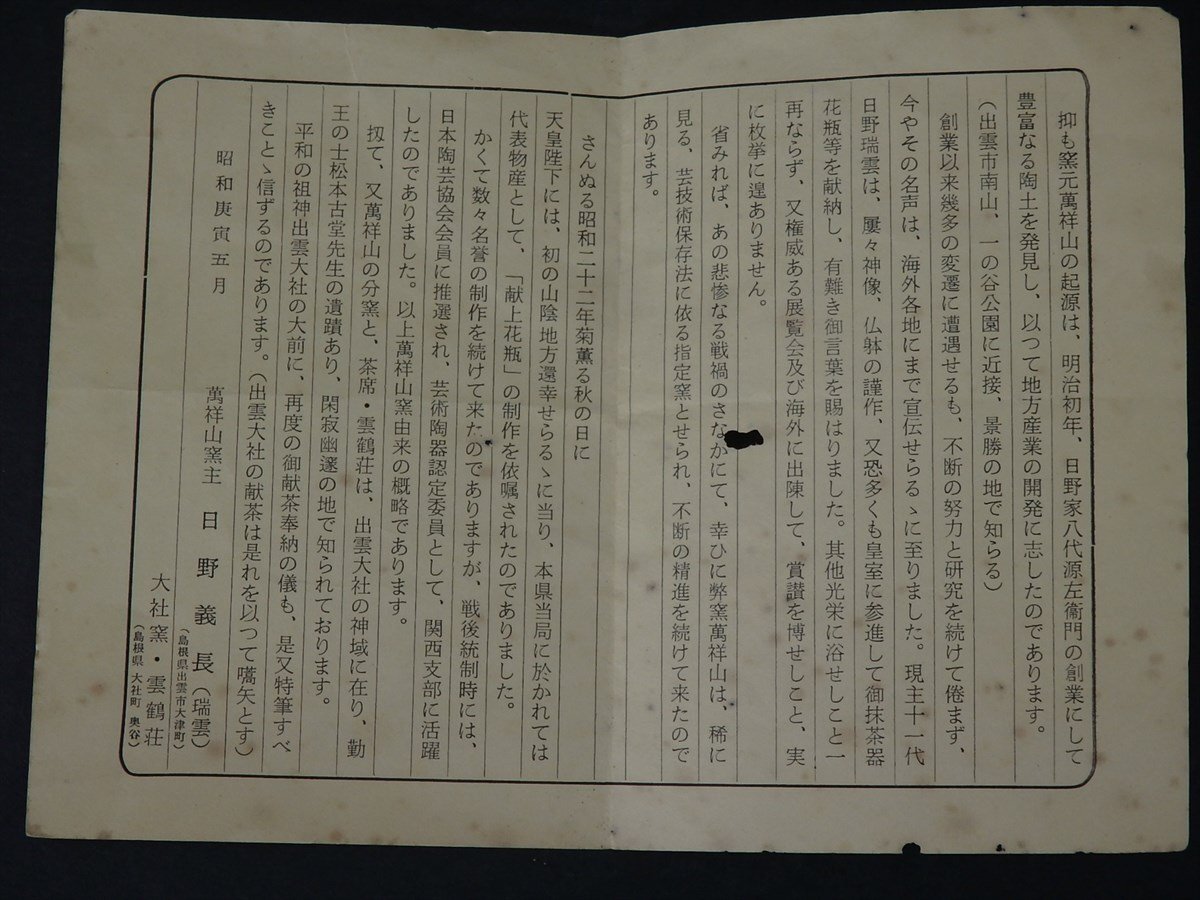 抑も窯元萬祥山の起源は、明治初年、日野家八代源左衞門の創業にして
豊富なる陶土を発見し、以つて地方産業の開発に志したのであります。
(出雲市南山、一の谷公園に近接、景勝の地で知らる)
創業以来幾多の変遷に遭遇せるも、不断の努力と研究を続けて倦まず、
今やその名声は、海外各地にまで宣伝せらるゝに至りました。現主十一代
日野瑞雲は、屢々神像、仏躰の謹作、又恐多くも皇室に参進して御抹茶器
花瓶等を献納し、有難き御言葉を賜はりました。其他光栄に浴せしこと一
再ならず、又権威ある展覧会及び海外に出陳して、賞讃を博せしこと、実
に枚挙に遑ありません。
省みれば、あの悲惨なる戦禍のさなかにて、幸ひに弊窯萬祥山は、稀に
見る、芸技術保存法に依る指定窯とせられ、不断の精進を続けて来たので
あります。
さんぬる昭和二十二年菊薫る秋の日に
天皇陛下には、初の山陰地方還幸せらるゝに当り、本県当局に於かれては
代表物産として、「献上花瓶」の制作を依嘱されたのでありました。
かくて数々名誉の制作を続けて来たのでありますが、戦後統制時には、
日本陶芸協会会員に推選され、芸術陶器認定委員として、関西支部に活躍
したのでありました。以上萬祥山窯由来の概略であります。
扨て、又萬祥山の分窯と、茶席・雲鶴荘は、出雲大社の神域に在り、勤
王の士松本古堂先生の遺蹟あり、閑寂幽邃の地で知られております。
平和の祖神出雲大社の大前に、再度の御献茶奉納の儀も、是又特筆すべ
きことゝ信ずるのであります。(出雲大社の献茶は是れを以つて嚆矢とす)
昭和庚寅五月
萬祥山窯主 日野義長(瑞雲)
(島根県出雲市大津町)
大社窯・雲鶴荘
(島根県大社町奥谷)